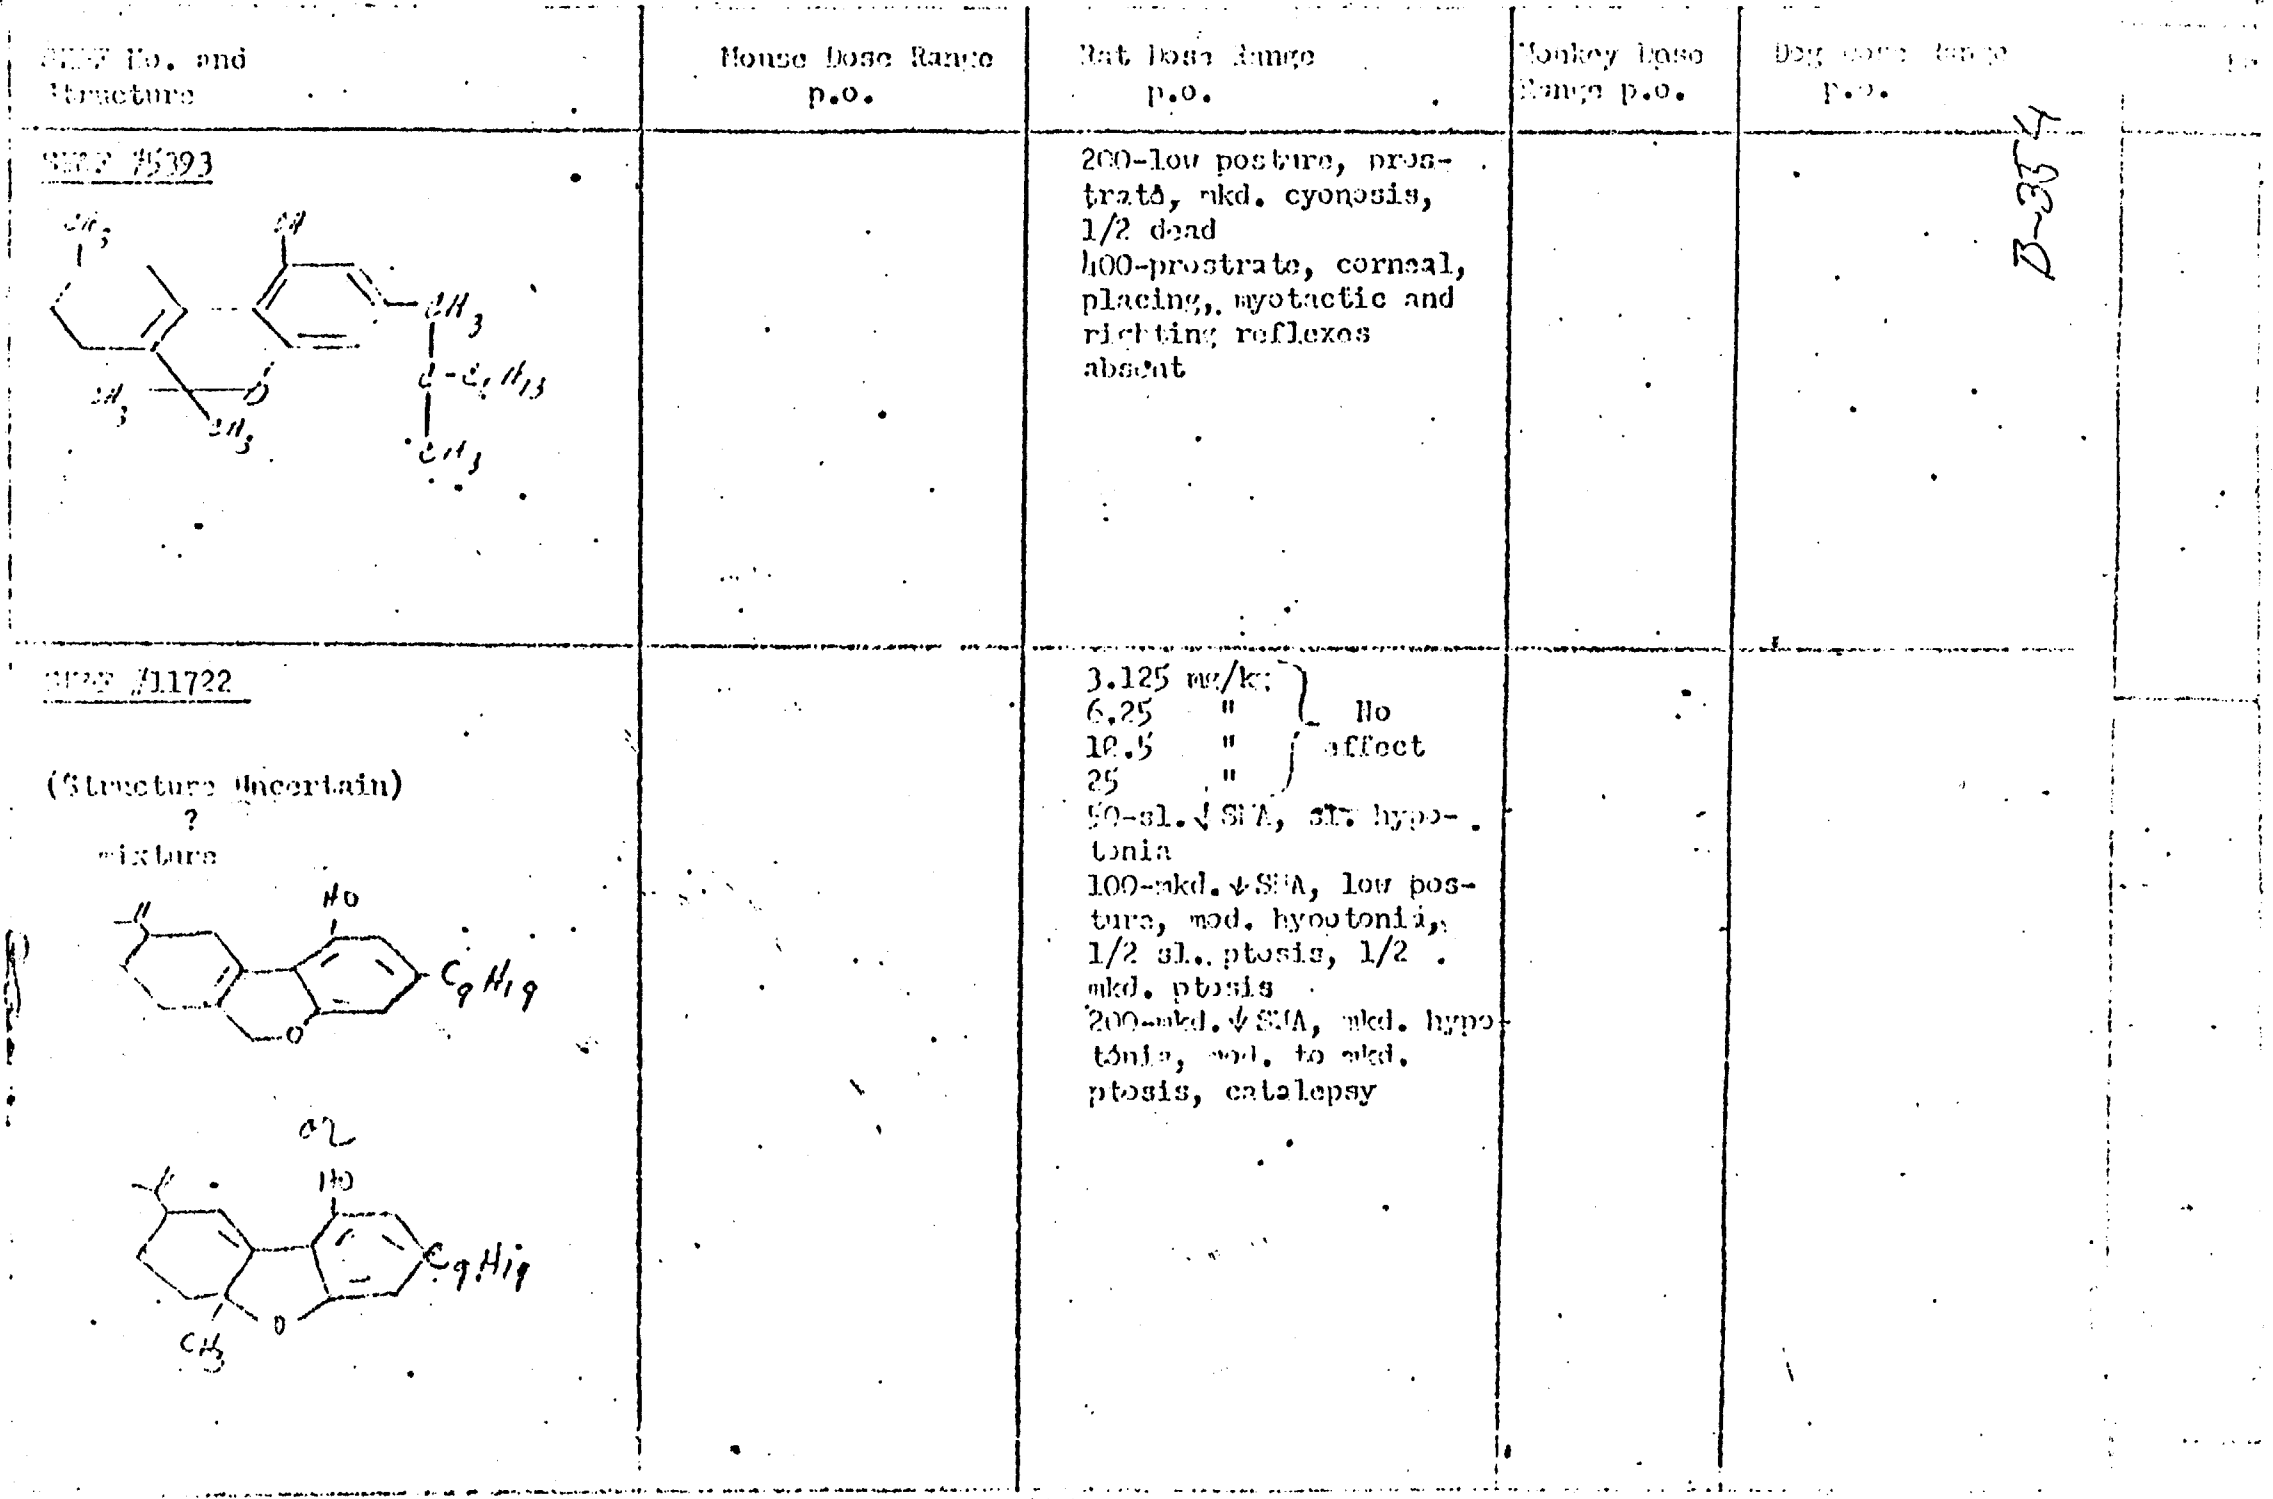 No. and
Structure
Mouse Dose Range
p.o.
Rat Dose Range
p.o.
Monkey Dose
Range p.o.
Dog Dose Range
p.o.
B-354
#5393
CH3
OH
CH3
C-C6H13
CH3
CH3
O
CH3
200-low posture, pros-
trate, mkd. cyonosis,
1/2 dead
400-prostrate, corneal,
placing, myotactic and
righting reflexes
absent
#11722
(Structure Uncertain)
?
mixture
HO
C9H19
O
or
HO
C9H19
O
CH3
3.125 mg/kg
6.25 " No
12.5 " affect
25 "
50-sl.↓SMA, sl. hypo-
tonia
100-mkd.↓SMA, low pos-
ture, mod. hypotonia,
1/2 sl. ptosis, 1/2
mkd. ptosis
200-mkd.↓SMA, mkd. hypo-
tonia, mod. to mkd.
ptosis, catalepsy